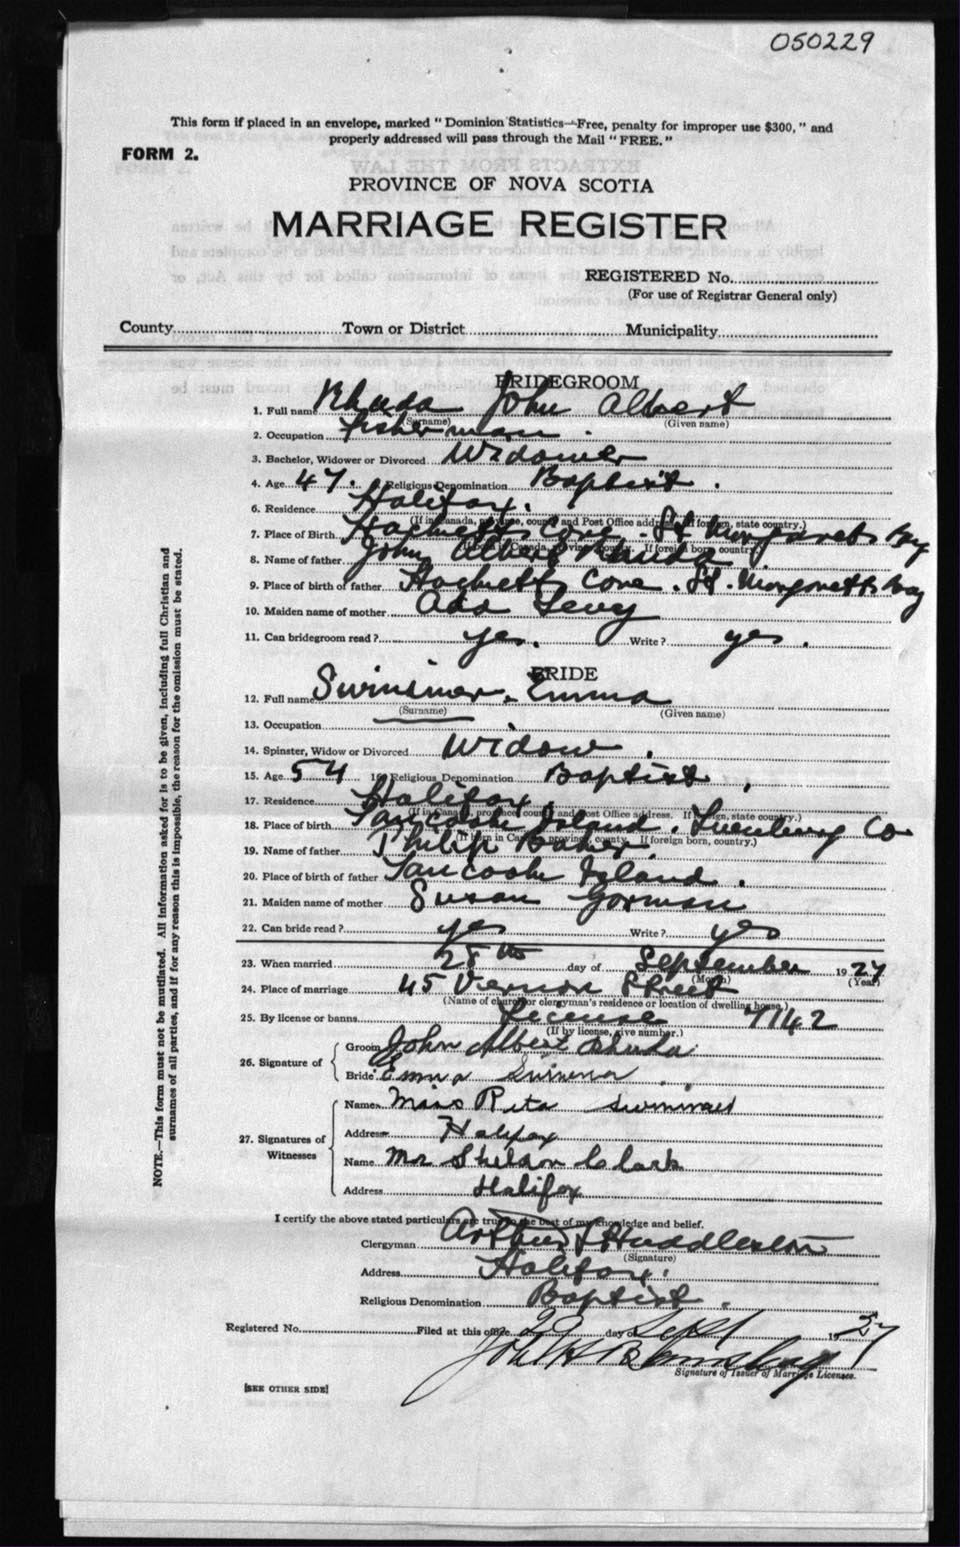 050229
This form if placed in an envelope, marked "Dominion Statistics—Free, penalty for improper use $300," and
properly addressed will pass through the Mail "FREE."
FORM 2.
PROVINCE OF NOVA SCOTIA
MARRIAGE REGISTER
REGISTERED No.
(For use of Registrar General only)
County Town or District Municipality
BRIDEGROOM
1. Full name Rhuda John Albert
(Surname) (Given name)
2. Occupation Fisherman.
3. Bachelor, Widower or Divorced Widower
4. Age 47. Religious Denomination Baptist.
6. Residence Halifax.
(If in Canada, province, county and Post Office address. If foreign, state country.)
7. Place of Birth Cove. St. Margarets Bay
If foreign born country
8. Name of father John Albert Rhuda
9. Place of birth of father Hacketts Cove. St. Margaretts Bay
10. Maiden name of mother Ada Levy
11. Can bridegroom read? yes. Write? yes.
BRIDE
12. Full name Swinimer. Emma
(Surname) (Given name)
13. Occupation
14. Spinster, Widow or Divorced Widow.
15. Age 54 16 Religious Denomination Baptist.
17. Residence Halifax
(If in Canada, province, county and Post Office address. If foreign, state country.)
18. Place of birth Tancook Island. Lunenburg Co
(If born in Canada, province, county. If foreign born, country.)
19. Name of father Philip Baker.
20. Place of birth of father Tancook Island.
21. Maiden name of mother Susan Gorman
22. Can bride read? yes Write? yes
23. When married 28th day of September 1927
(Month) (Year)
24. Place of marriage 45 Vernon Street
(Name of church or clergyman's residence or location of dwelling house.)
25. By license or banns License 7142
(If by license, give number.)
26. Signature of
Groom John Albert Rhuda
Bride Emma
27. Signatures of Witnesses
Name Miss Rita
Address Halifax
Name Mr Sheldon Clark
Address Halifax
I certify the above stated particulars are true to the best of my knowledge and belief.
Clergyman Arthur Huddleston
(Signature)
Address Halifax.
Religious Denomination Baptist.
Registered No. Filed at this office 29 day of Sept 1927
John
Signature of Issuer of Marriage Licenses.
[SEE OTHER SIDE]
NOTE.—This form must not be mutilated. All information asked for is to be given, including full Christian and
surnames of all parties, and if for any reason this is impossible, the reason for the omission must be stated.